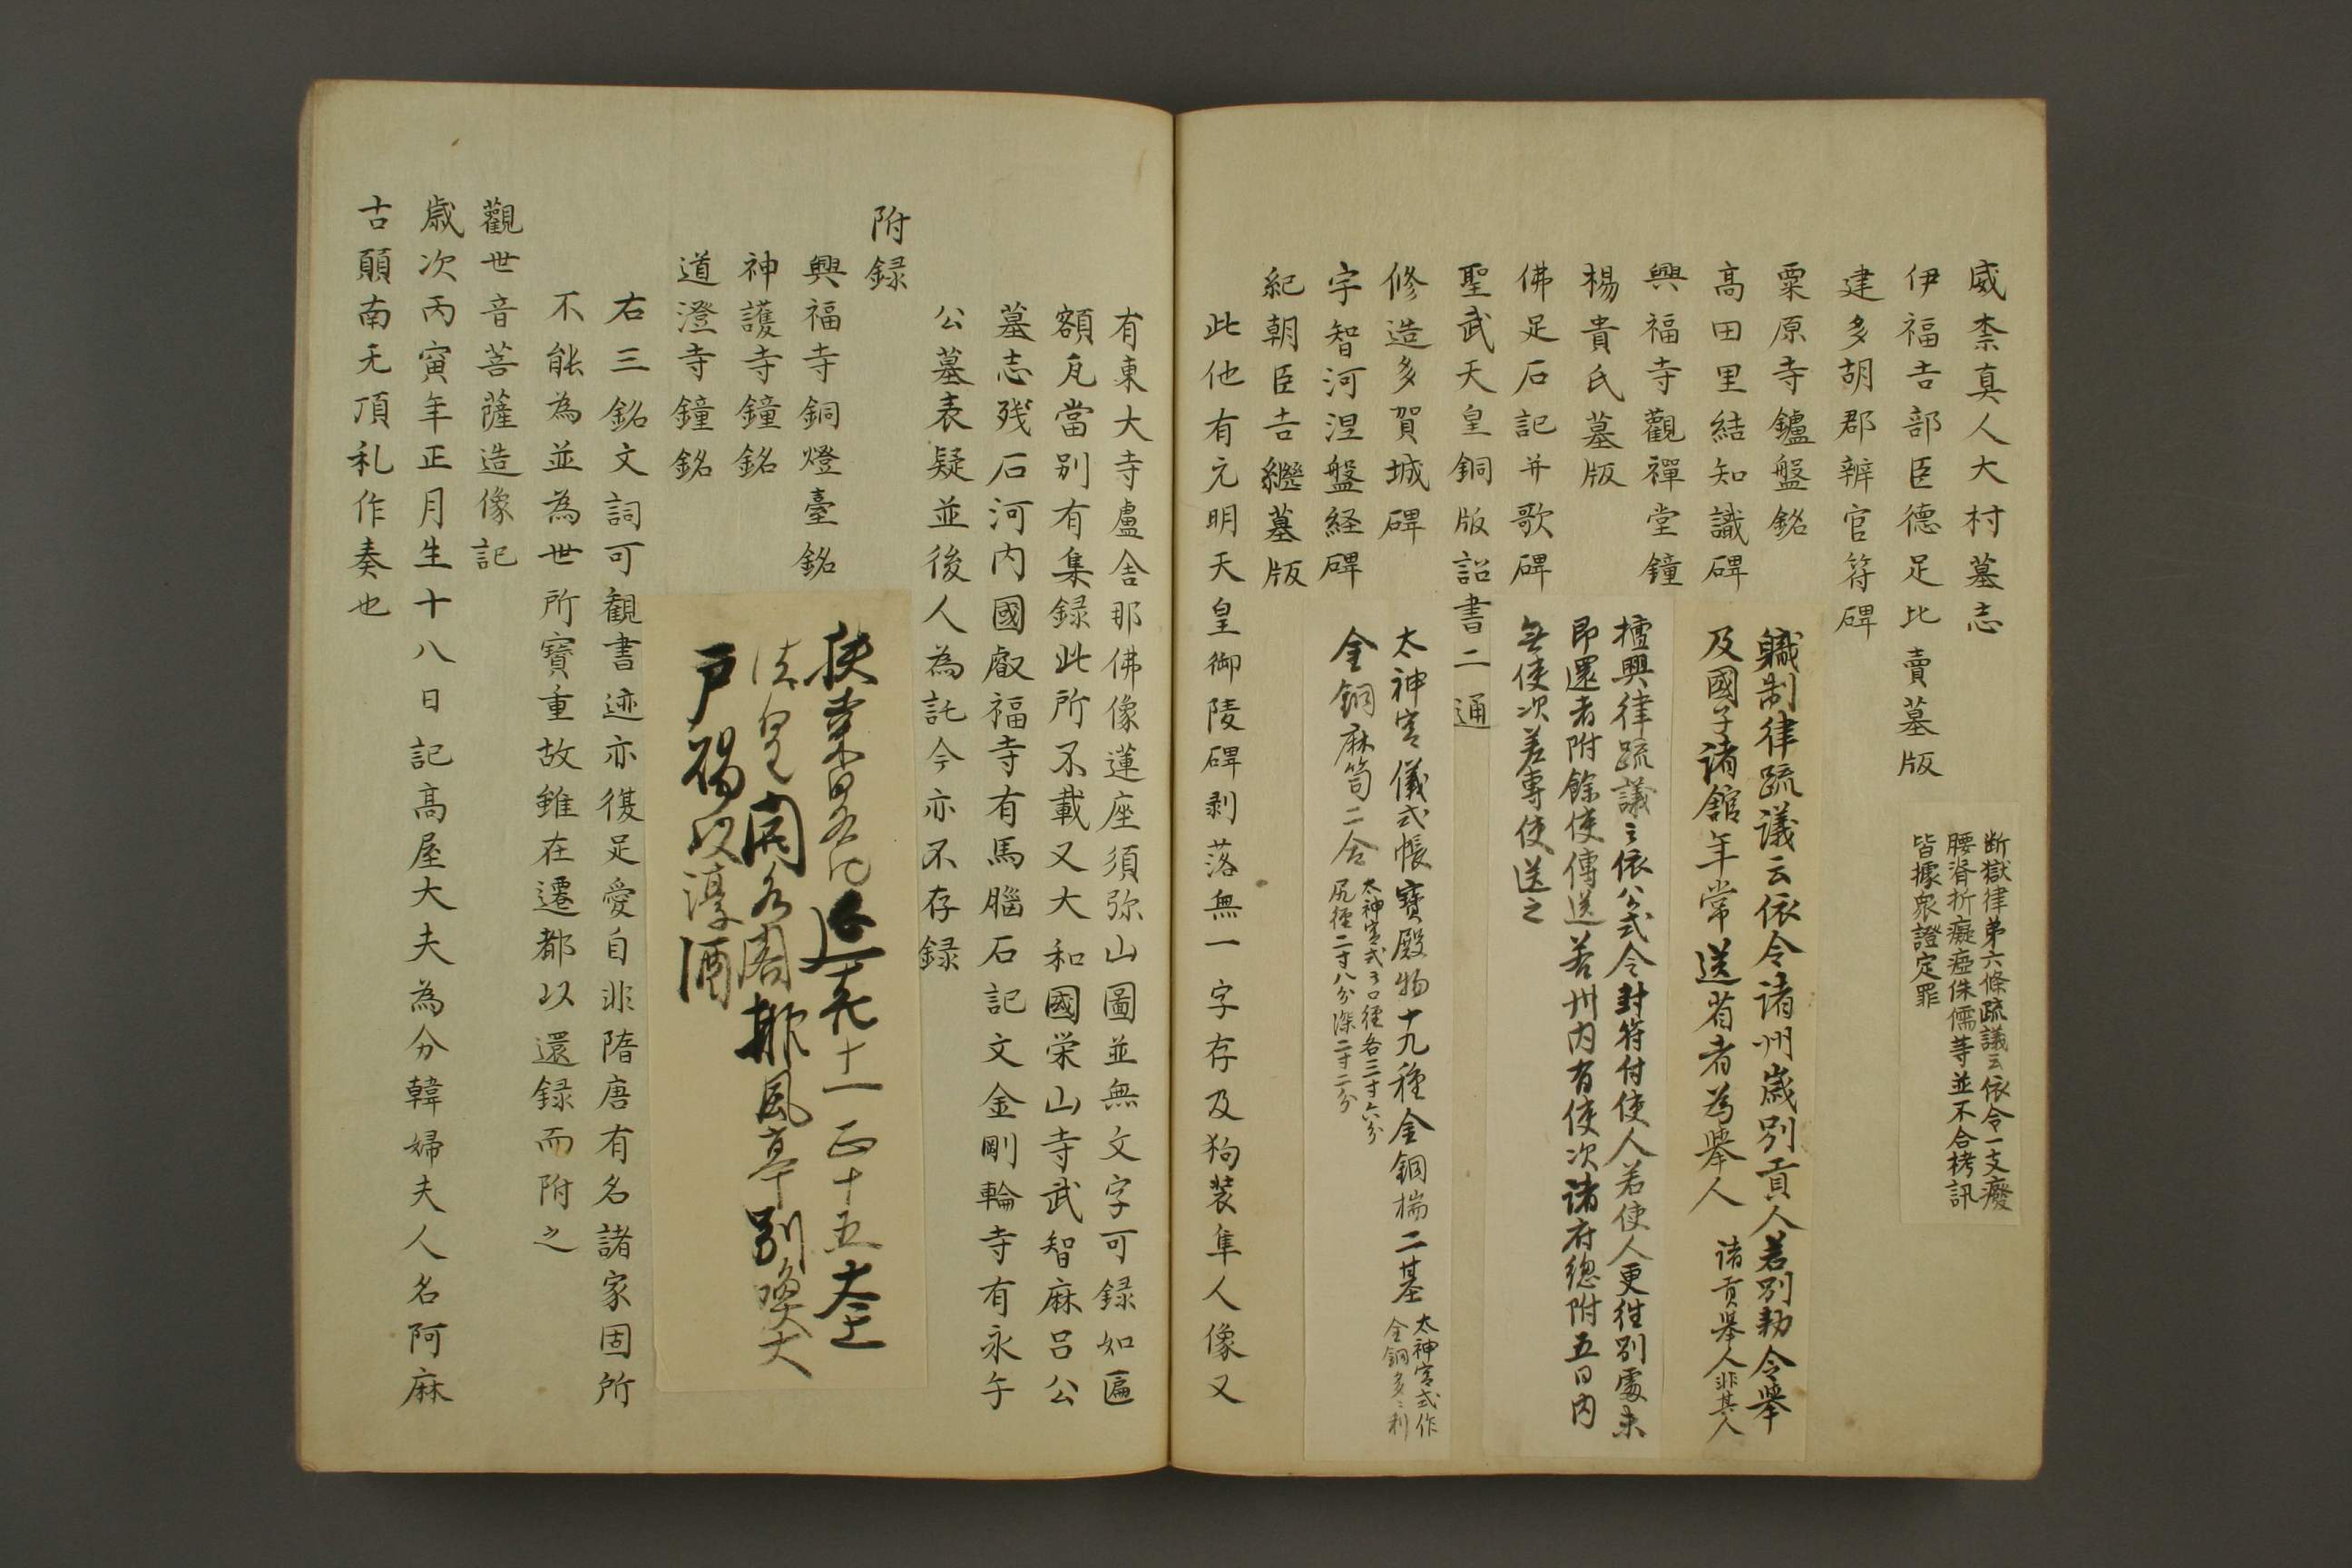 威柰真人大村墓志
伊福吉部臣德足比賣墓版
建多胡郡辨官符碑
粟原寺鑪盤銘
高田里結知識碑
興福寺觀禪堂鐘
楊貴氏墓版
佛足石記并歌碑
聖武天皇銅版詔書二通
修造多賀城碑
宇智河涅盤経碑
紀朝臣吉繼墓版
此他有元明天皇御陵碑剥落無一字存及狗装隼人像又
断獄律苐六條疏議云依令一支癈
腰脊折癡瘂侏儒等並不合拷訊
皆據衆證定罪
職制律疏議云依令諸州歳別貢人若別勅令舉
及國子諸舘年常送省者為舉人
諸貢舉人非其人
擅興律疏議云依公式令封符付使人若使人更徃別處未
即還者附餘使傳送若州内有使次諸府總附五日内
無使次差專使送之
太神宮儀式帳寶殿物十九種金銅椯二基
太神宮式作
金銅多々利
金銅麻笥二合
太神宮式云口徑各三寸六分
尻徑二寸八分深二寸二分
有東大寺盧舎那佛像蓮座須弥山圖並無文字可録如匾
額瓦當别有集録此所不載又大和國栄山寺武智麻呂公
墓志残石河内國叡福寺有馬腦石記文金剛輪寺有永手
公墓表疑並後人為託今亦不存録
附録
興福寺銅燈臺銘
神護寺鐘銘
道澄寺鐘銘
右三銘文詞可観書迹亦復足愛自非隋唐有名諸家固所
不能為並為世所寳重故雖在遷都以還録而附之
觀世音菩薩造像記
歳次丙寅年正月生十八日記高屋大夫為分韓婦夫人名阿麻
古願南无頂礼作奏也
扶桑略記延喜十一正十五太上
法皇開水閣排風亭別喚大
戸賜以淳酒